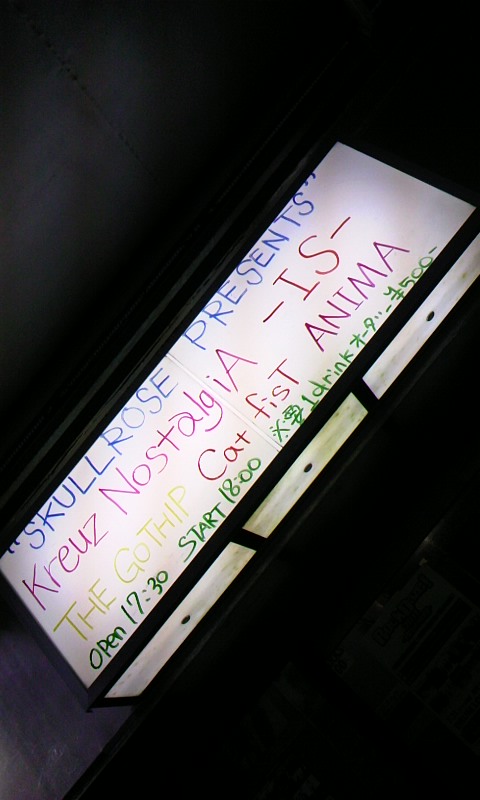 "SKULLROSE PRESENTS"
Kreuz NostalgiA -IS-
THE GOTHIP Cat fisT ANIMA
OPen 17:30 START 18:00 ※要1drinkオーダー¥500-